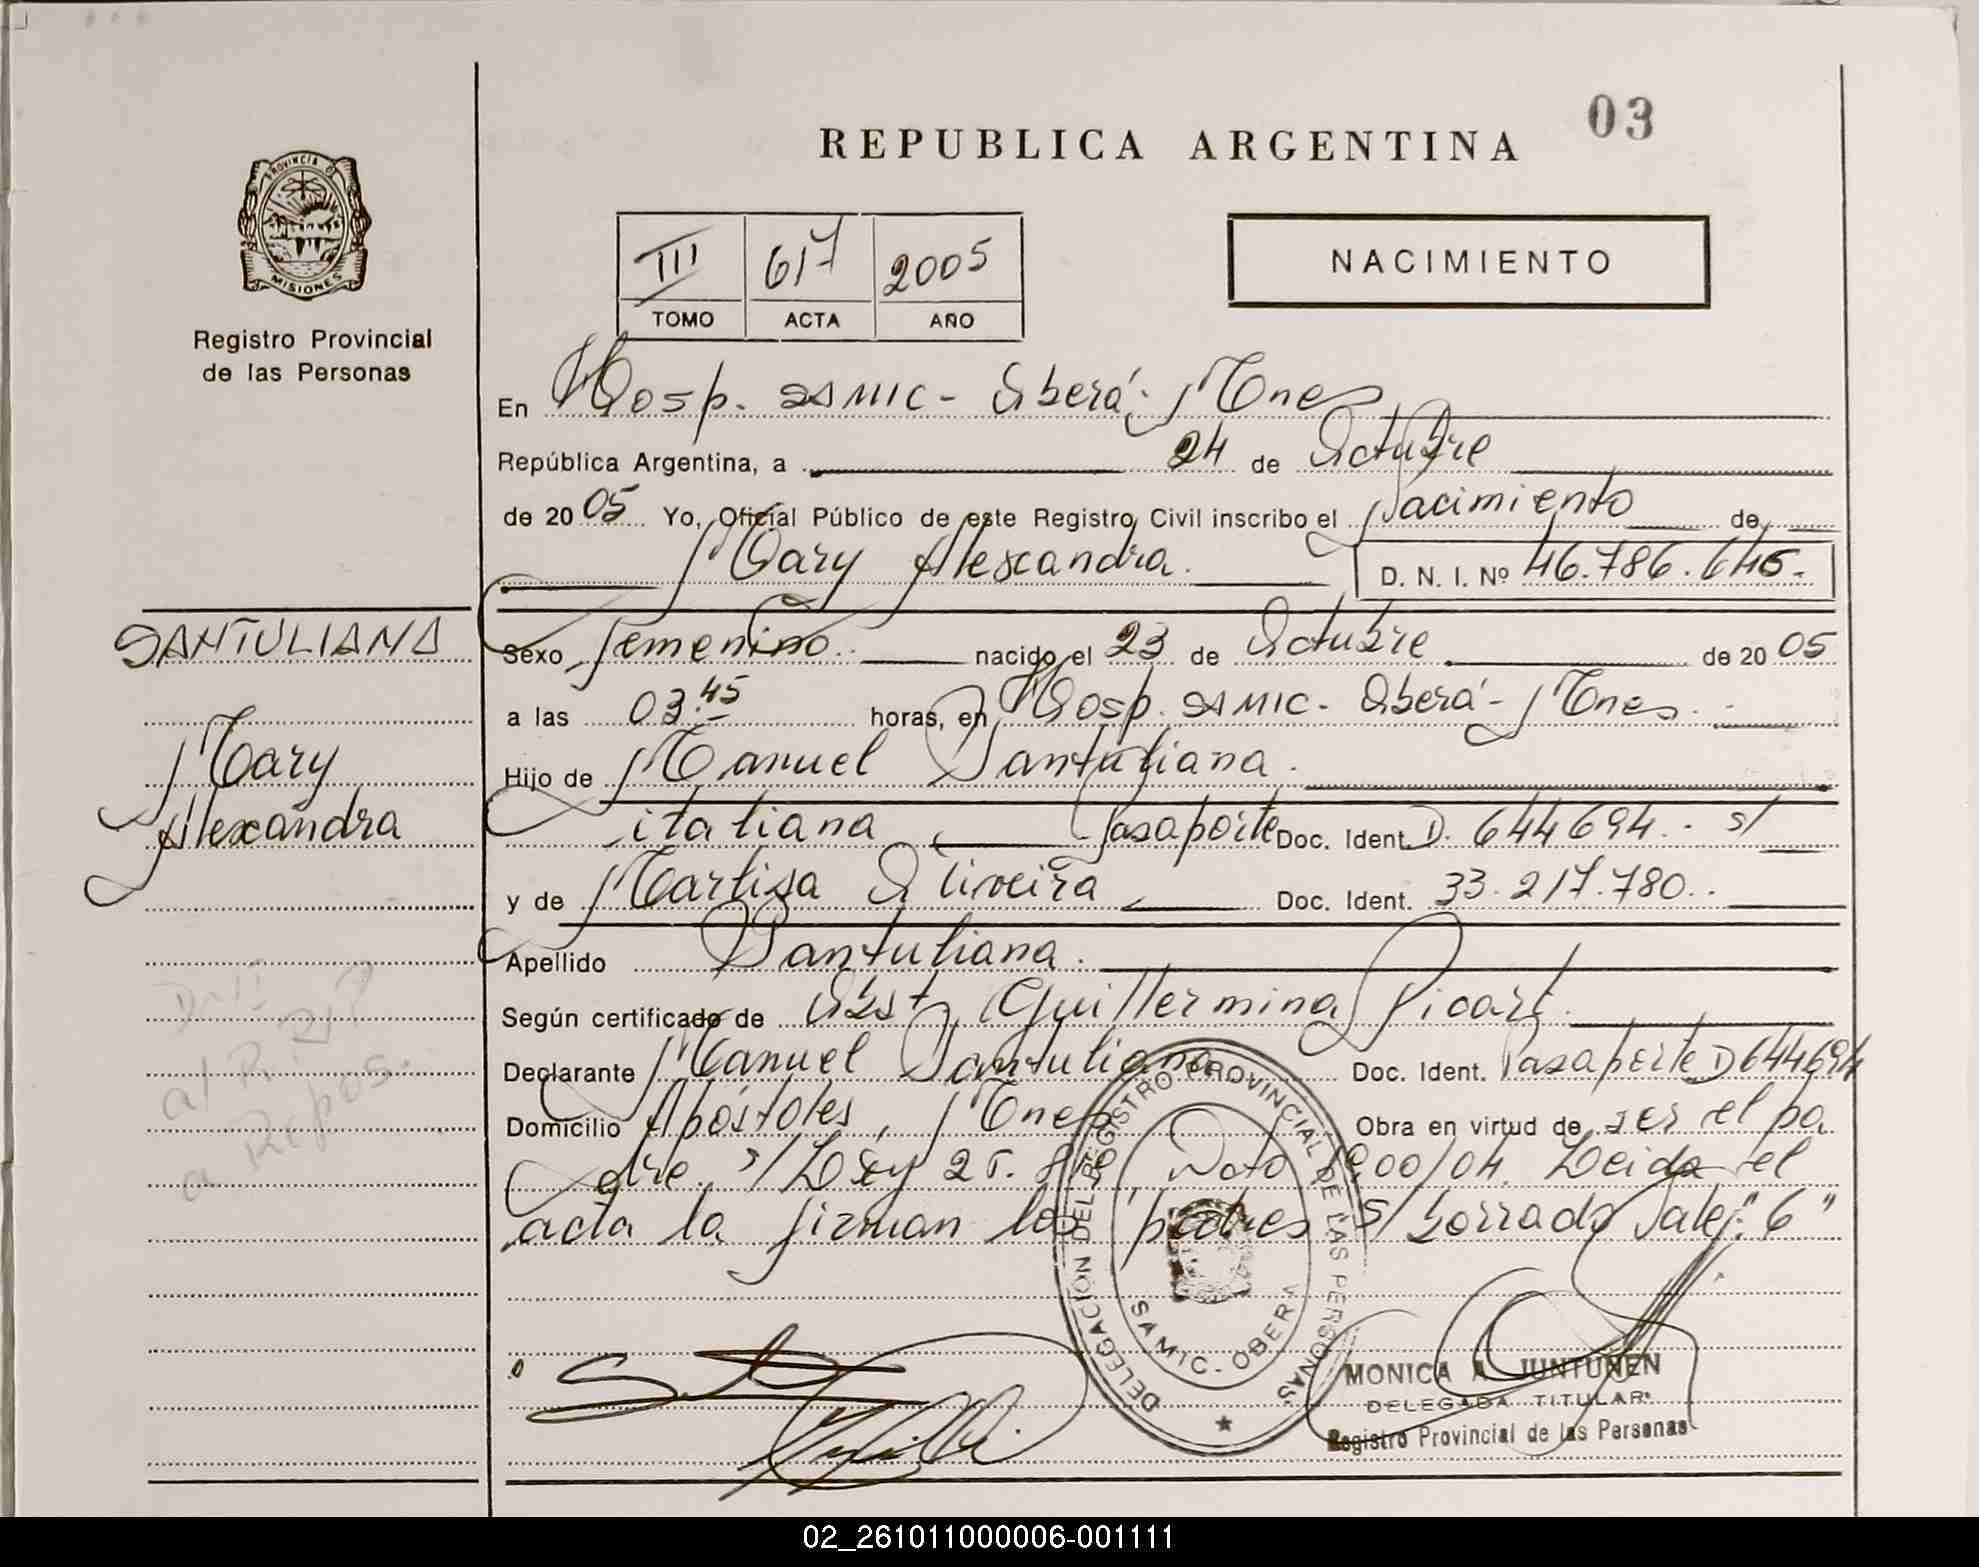 03
REPUBLICA ARGENTINA
PROVINCIA DE
MISIONES
Registro Provincial
de las Personas
III 617 2005
TOMO ACTA AÑO
NACIMIENTO
En Hosp. SAMIC - Oberá - Mnes
República Argentina, a 24 de Octubre
de 20 05 Yo, Oficial Público de este Registro Civil inscribo el Nacimiento de
Mary Alexandra. D. N. I. Nº 46.786.645.-
SANTULIANA
Mary
Alexandra
Sexo femenino. nacido el 23 de Octubre de 20 05
a las 03.45 horas, en Hosp. SAMIC - Oberá - Mnes.
Hijo de Manuel Santuliana.
italiana Pasaporte Doc. Ident. D. 644694.- s/
y de Marlisa Oliveira Doc. Ident. 33.217.780.-
Apellido Santuliana.
Según certificado de Obst. Guillermina Picart.
Declarante Manuel Santuliana Doc. Ident. Pasaporte D 644694
Domicilio Apóstoles, Mnes Obra en virtud de ser el pa
dre. s/ Ley 25. Dcto 900/04. Leida el
acta la firman los padres s/ borrado Vale: "6"
a Repos.
DELEGACION DEL REGISTRO PROVINCIAL DE LAS PERSONAS
SAMIC - OBERA
MONICA A JUNTUNEN
DELEGADA TITULAR
Registro Provincial de las Personas
02_261011000006-001111